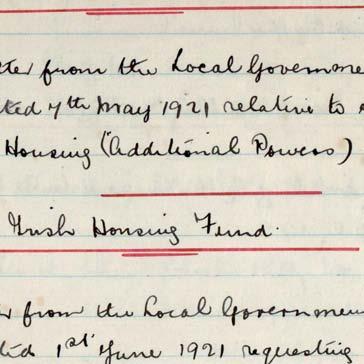 tter from the Local Governme
ted 7th May 1921 relative to
Housing (Additional Powers)
Irish Housing Fund.
r from the Local Governmen
ted 1st June 1921 requesting